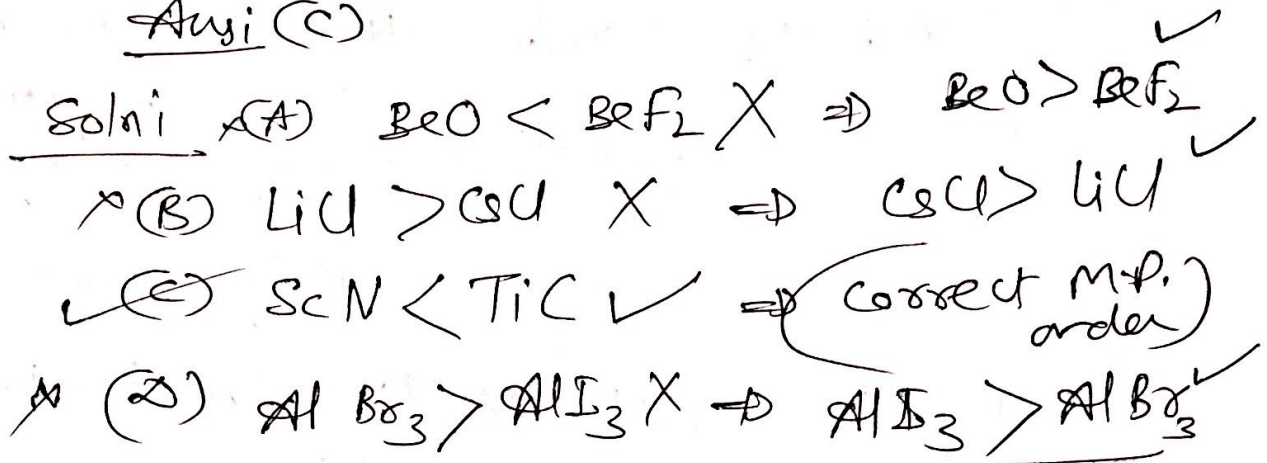 Ans: (C)
Soln: ×(A) BeO < BeF₂ X ⇒ BeO > BeF₂ ✓
×(B) LiCl > CsCl X ⇒ CsCl > LiCl ✓
✓(C) ScN < TiC ✓ ⇒ (Correct M.P. order)
× (D) AlBr₃ > AlI₃ X ⇒ AlI₃ > AlBr₃ ✓